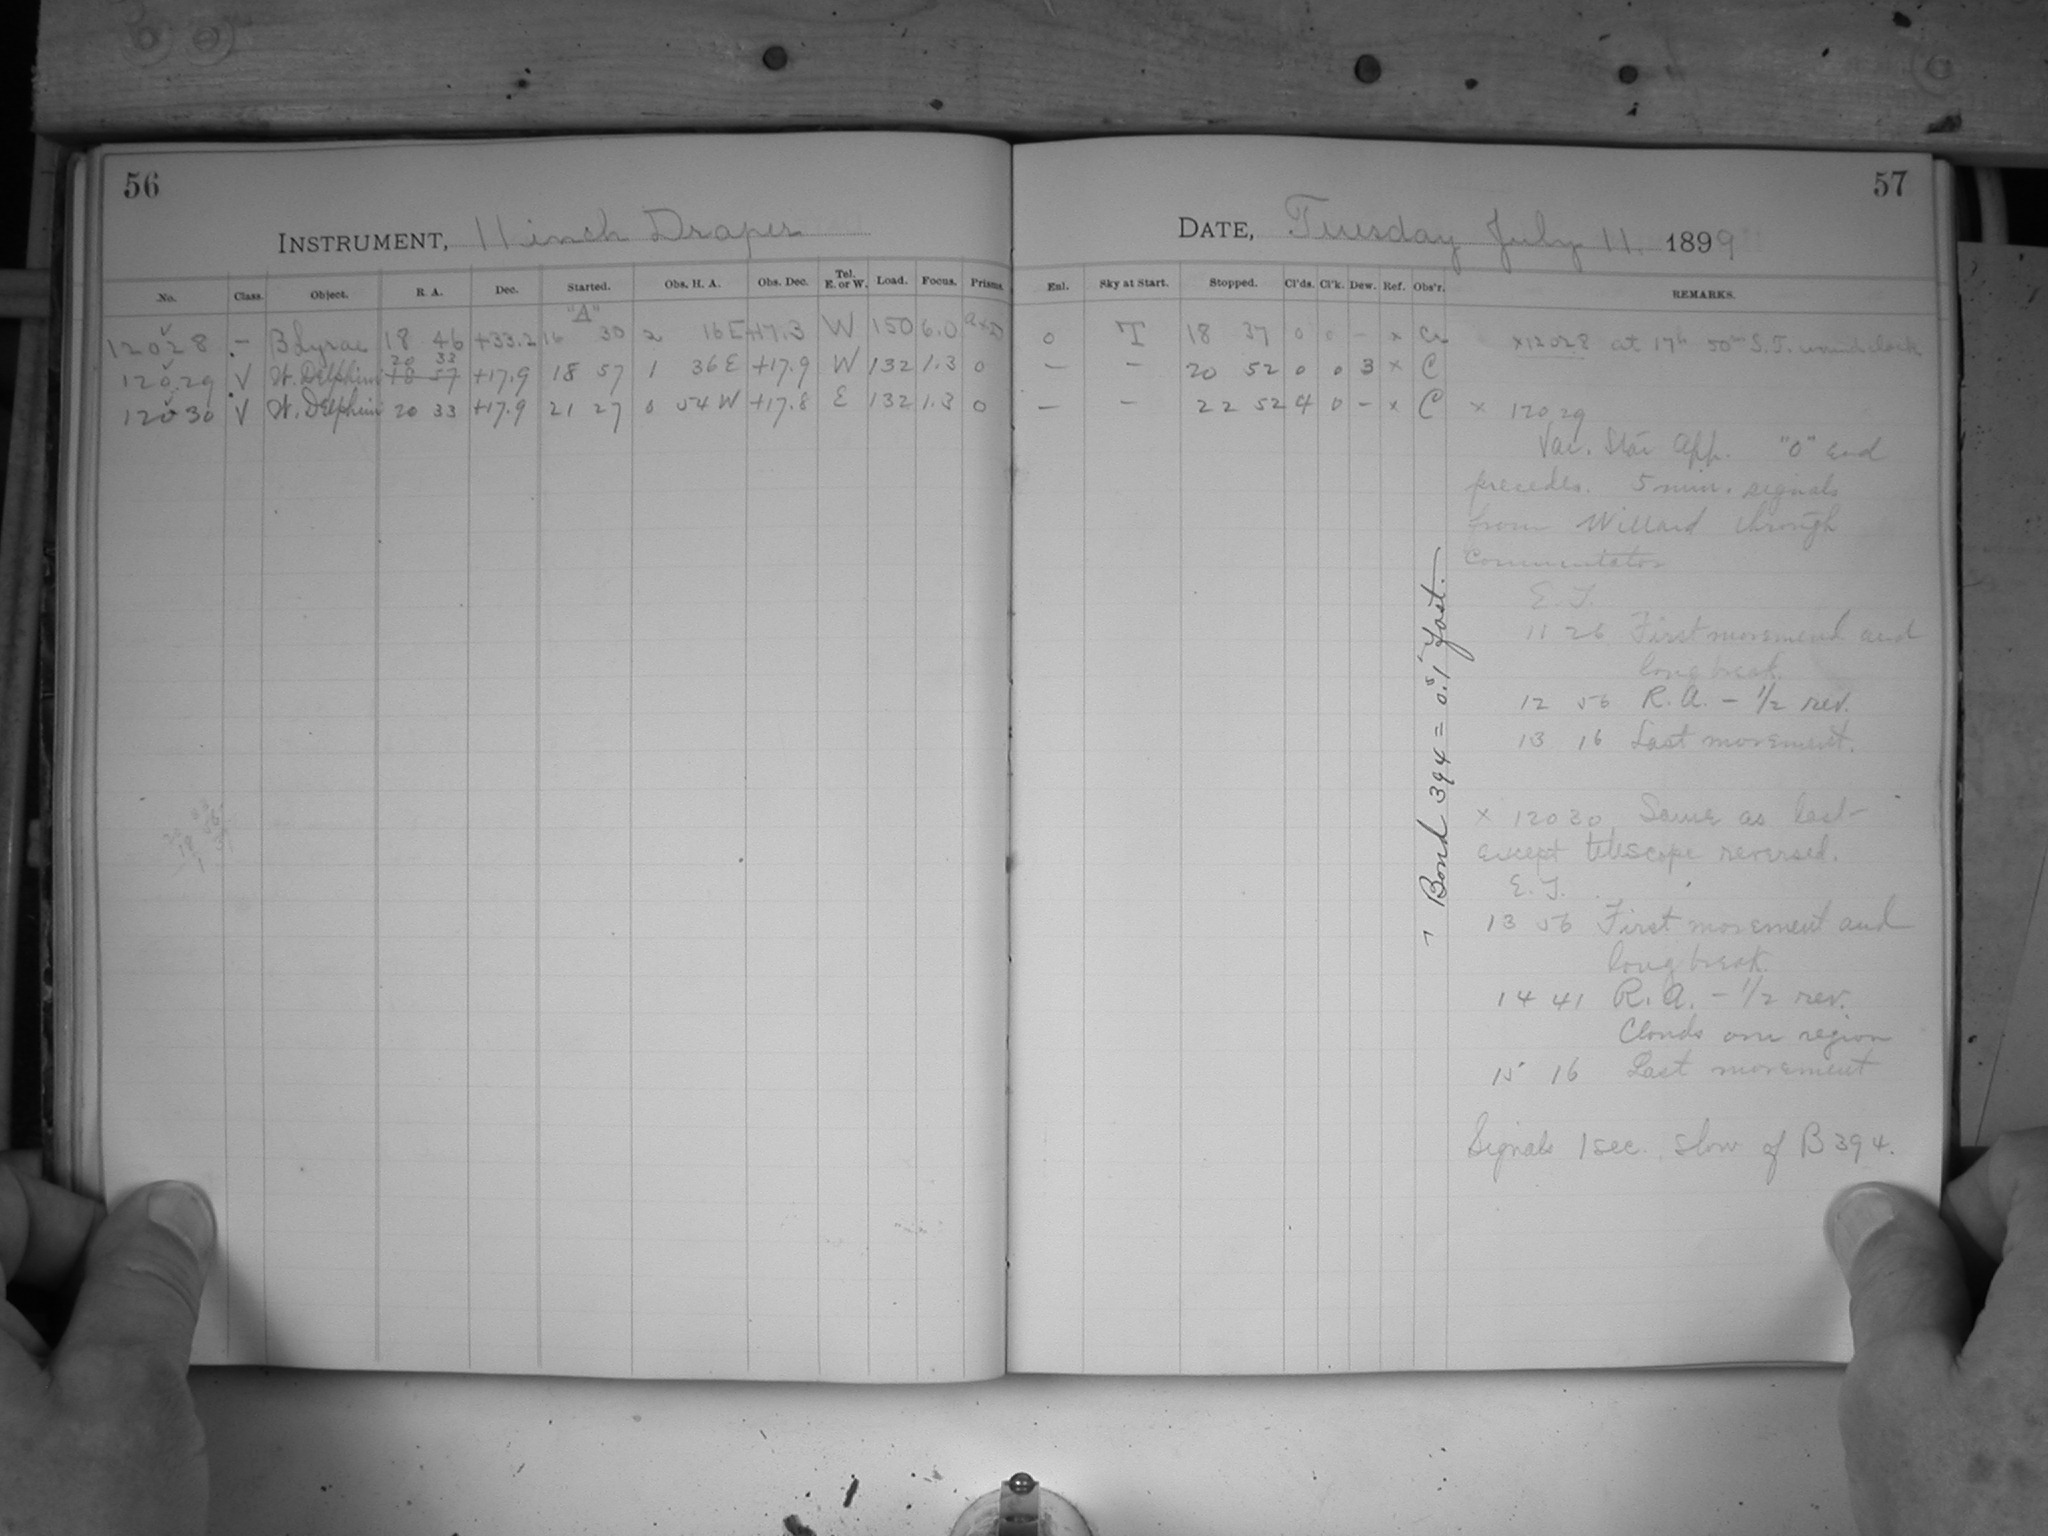 56
INSTRUMENT, 11 inch Draper
No. Class. Object. R. A. Dec. Started. Obs. H. A. Obs. Dec. Tel. E. or W. Load. Focus. Prisms.
"A"
12028 – B Lyrae 18 46 +33.2 16 30 2 16 E +17.3 W 150 6.0
20 33
12029 V W. Delphini 18 57 +17.9 18 57 1 36 E +17.9 W 132 1.3 0
12030 V W. Delphini 20 33 +17.9 21 27 0 54 W +17.8 E 132 1.3 0
57
DATE, Tuesday July 11. 1899
Enl. Sky at Start. Stopped. Cl'ds. Cl'k. Dew. Ref. Obs'r. REMARKS.
0 T 18 37 0 0 – x x12028 at 17h 50m S.T. wound clock
– – 20 52 0 0 3 x C
– – 22 52 4 0 – x C x 12029
Var. Star App. "0" end
precedes. 5 min. signals
from Willard through
commutator
E. T.
11 26 First movement and
long break.
12 56 R. A. – 1/2 rev.
13 16 Last movement.
x 12030 Same as last
except telescope reversed.
E. T.
13 56 First movement and
long break.
14 41 R. A. – 1/2 rev.
Clouds over region
15 16 Last movement
Signals 1 sec. slow of B 394.
Bond 394 = 0.s1 fast.